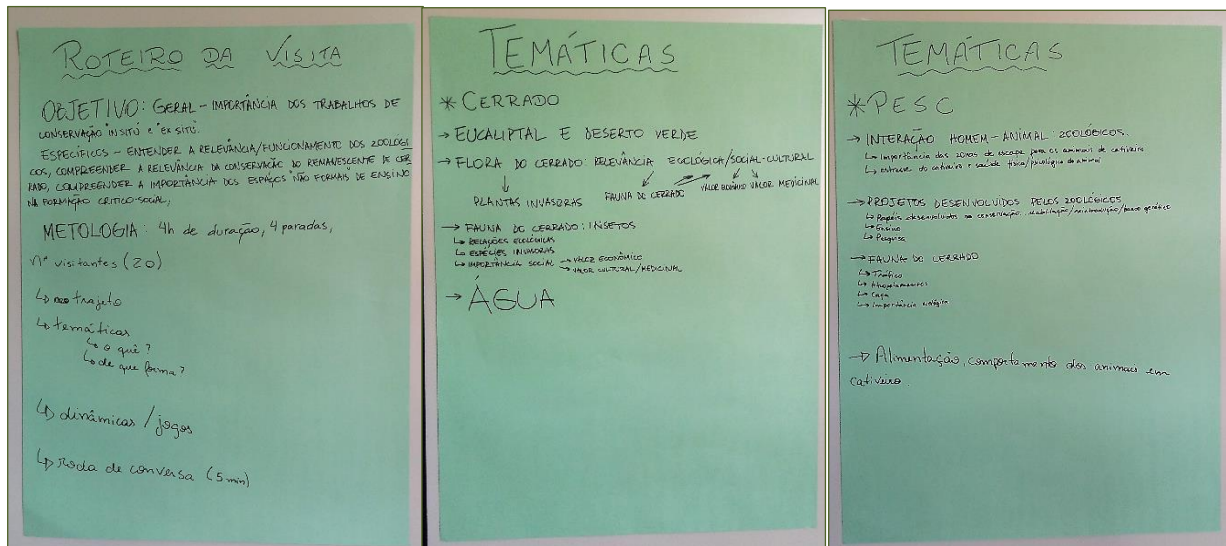 ROTEIRO DA VISITA
OBJETIVO: GERAL - IMPORTÂNCIA DOS TRABALHOS DE
CONSERVAÇÃO "IN SITU" E "EX SITU".
ESPECÍFICOS - ENTENDER A RELEVÂNCIA/FUNCIONAMENTO DOS ZOOLÓGI
COS, COMPREENDER A RELEVÂNCIA DA CONSERVAÇÃO DO REMANESCENTE DE CER
RADO, COMPREENDER A IMPORTÂNCIA DOS ESPAÇOS NÃO FORMAIS DE ENSINO
NA FORMAÇÃO CRITICO-SOCIAL,
METOLOGIA: 4h de duração, 4 paradas,
nº visitantes (20)
↳ trajeto
↳ temáticas
↳ o quê?
↳ de que forma?
↳ dinâmicas / jogos
↳ roda de conversa (5 min)
TEMÁTICAS
* CERRADO
→ EUCALIPTAL E DESERTO VERDE
→ FLORA DO CERRADO: RELEVÂNCIA ECOLÓGICA/SOCIAL-CULTURAL
PLANTAS INVASORAS FAUNA DO CERRADO VALOR VALOR MEDICINAL
→ FAUNA DO CERRADO: INSETOS
↳ RELAÇÕES ECOLÓGICAS
↳ ESPÉCIES INVASORAS
↳ IMPORTÂNCIA SOCIAL → VALOR ECONÔMICO
→ VALOR CULTURAL/MEDICINAL
→ ÁGUA
TEMÁTICAS
* PESC
→ INTERAÇÃO HOMEM-ANIMAL: ZOOLÓGICOS.
↳ Importância das zonas de escape para os animais de cativeiro
↳ estresse do cativeiro e saúde física/psicológica do animal
→ PROJETOS DESENVOLVIDOS PELOS ZOOLÓGICOS
↳ Papéis desenvolvidos na conservação: reabilitação/reintrodução/banco genético
↳ Ensino
↳ Pesquisa
→ FAUNA DO CERRADO
↳ Tráfico
↳ Atropelamentos
↳ Caça
↳ Importância
→ Alimentação, comportamento dos animais em
cativeiro.